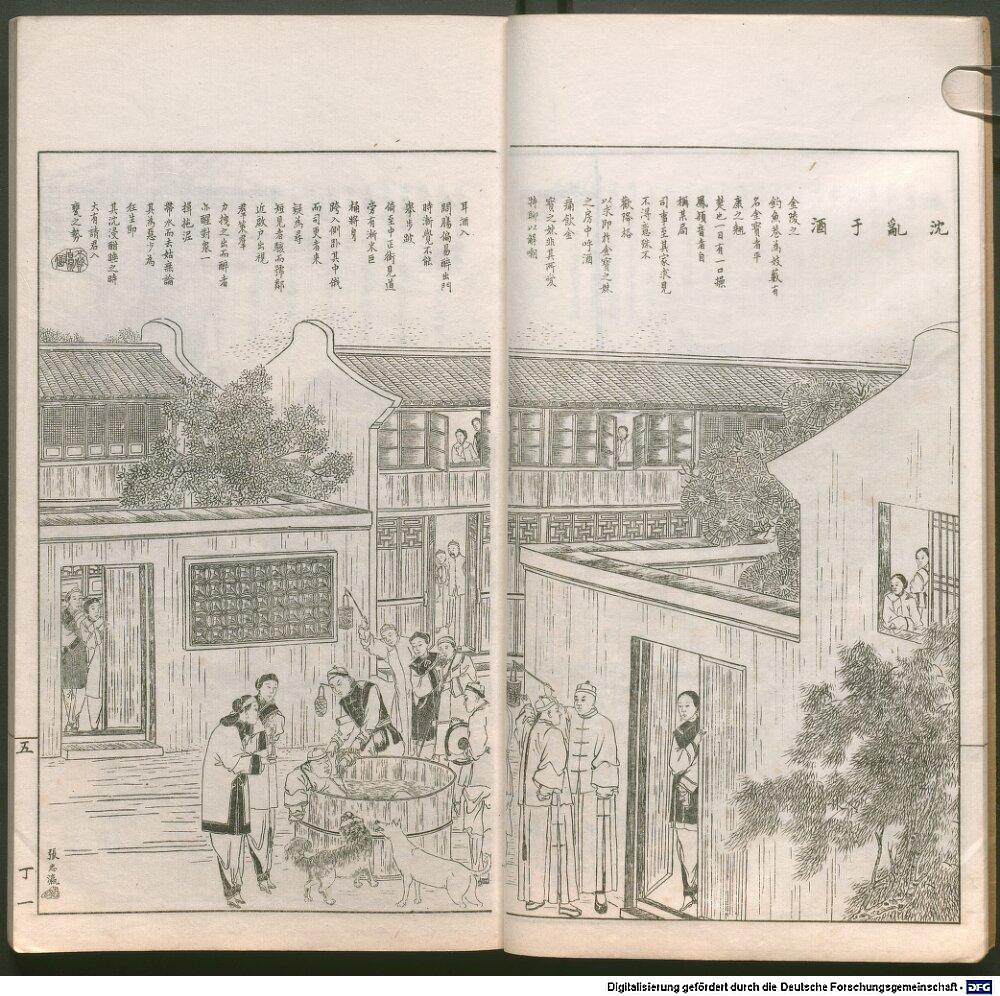 沈亂于酒
金陵之
釣魚巷為妓藪有
名金寶者平
康之翹
楚也一日有一口操
鳳頴音者自
稱某局
司事至其家求見
不得意殊不
歡得裕
以求卽於金寶之妹
之房中呼酒
痛飲金
寶之妹非其所愛
特聊以解嘲
耳酒入
悶膓偏易醉出門
時漸覺不能
舉步踱
倚至中正街見道
旁有淅米巨
桶將身
跨入側卧其中俄
而司更者來
疑為尋
短見者駭而號鄰
近啟戶出視
羣策羣
力拽之出而醉者
亦醒對衆一
揖拖泥
帶水而去姑無論
其為惡少為
狂生卽
其沉浸酣睡之時
大有請君入
甕之勢
張志瀛
五
丁
一
Digitalisierung gefördert durch die Deutsche Forschungsgemeinschaft - DFG